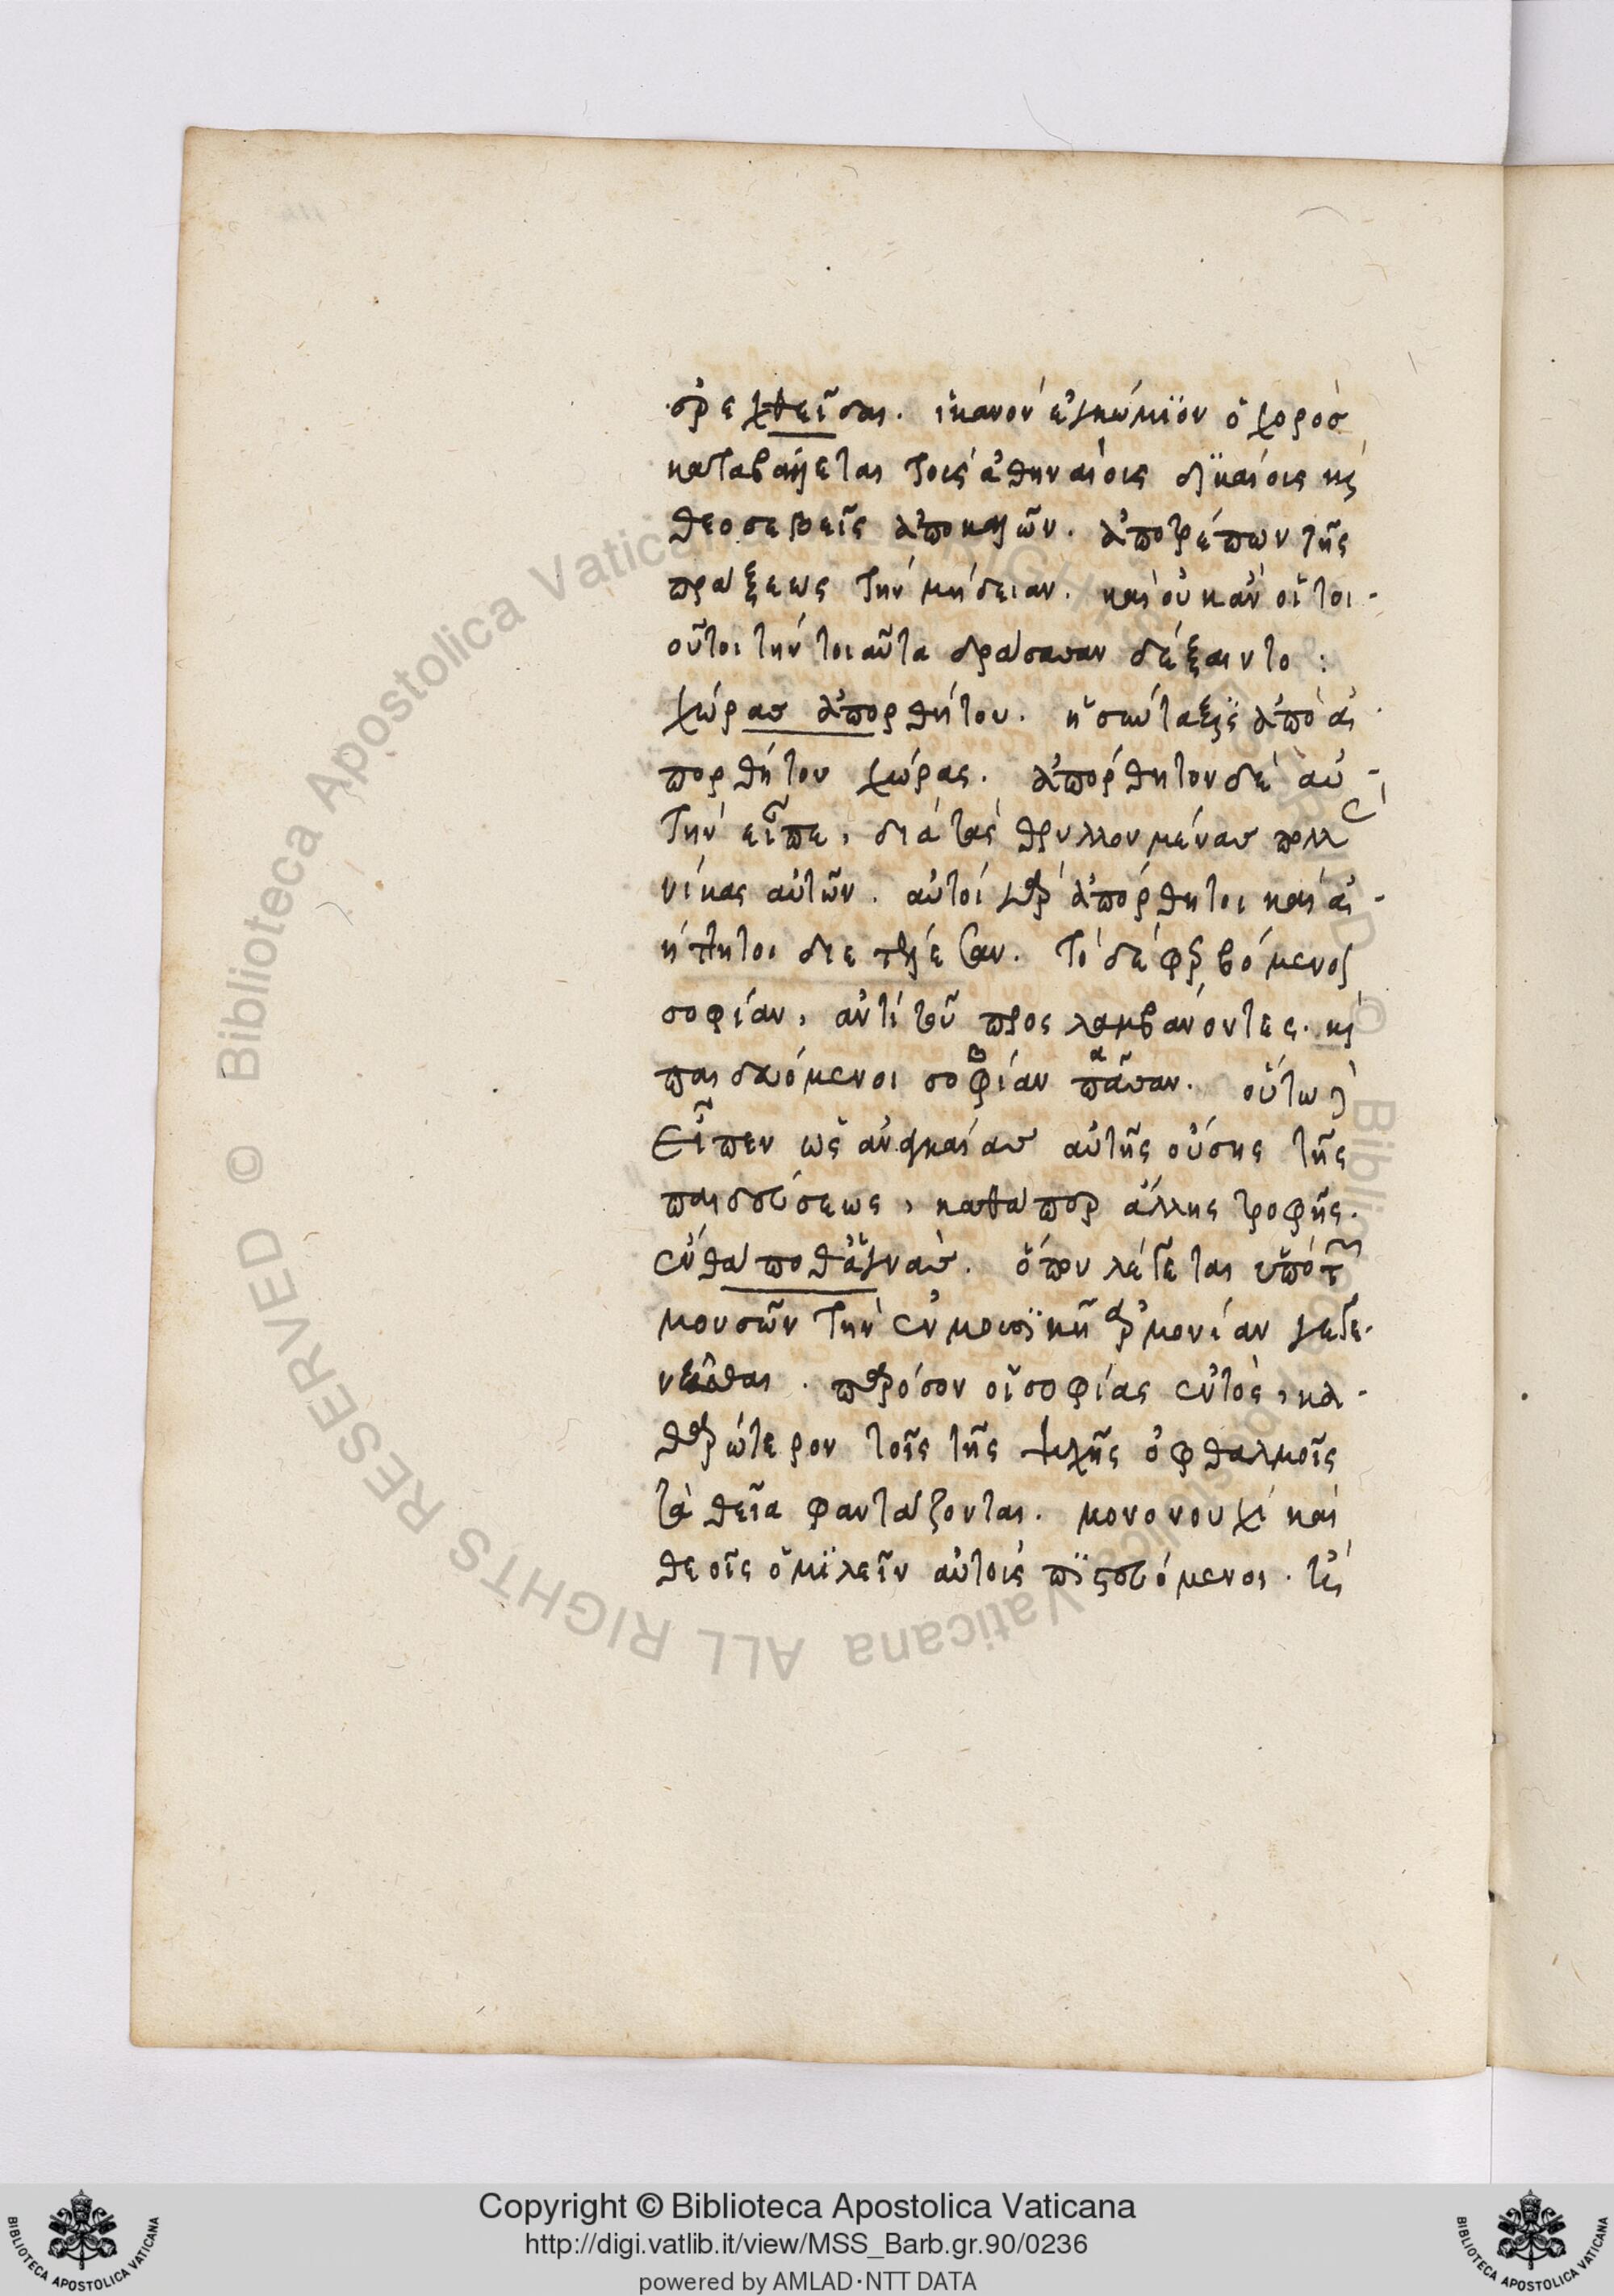 ὀρεχθεῖσαι. ἱκανὸν ἐγκώμϊον ὁ χορὸσ
καταβάλλεται τοῖς ἀθηναίοις δϊκαίοις καὶ
θεοσεβεῖς ἀποκαλῶν. ἀποτρέπων τῆς
πράξεως τὴν μήδειαν. καὶ οὐκ ἂν οἱ τοι-
οῦτοι τὴν τοιαῦτα δράσασαν δέξαιντο :
χώρασ ἀπορθήτου. ἡ σύνταξϊς ἀπὸ ἀ-
πορθήτου χώρας. ἀπόρθητον δὲ αὐ-
τὴν εἶπε, διὰ τὰς θρυλλουμένασ πολλὰς
νίκας αὐτῶν. αὐτοὶ γὰρ ἀπόρθητοι καὶ ἀ-
ήττητοι διετέλεσαν. τὸ δὲ φερβόμενοι
σοφίαν, ἀντὶ τοῦ προσλαμβάνοντες. καὶ
παιδευόμενοι σοφίαν πᾶσαν. οὕτω δὲ
εἶπεν ὡς ἀναγκαίασ αὐτῆς οὔσης τῆς
παιδεύσεως, καθάπερ ἄλλης τροφῆς.
ἔνθα ποθ' ἁγνάσ. ὅπου λέγεται ὑπὸ τῶν
μουσῶν τὴν ἐν μουσϊκῇ ἁρμονίαν γεγε-
νῆσθαι. παρόσον οἱ σοφίας ἐντὸς, κα-
θαρώτερον τοῖς τῆς ψυχῆς ὀφθαλμοῖς
τὰ θεῖα φαντάζονται. μονονουχὶ καὶ
θεοῖς ὁμϊλεῖν αὐτοῖς πϊστευόμενοι.
Copyright © Biblioteca Apostolica Vaticana
http://digi.vatlib.it/view/MSS_Barb.gr.90/0236
powered by AMLAD·NTT DATA